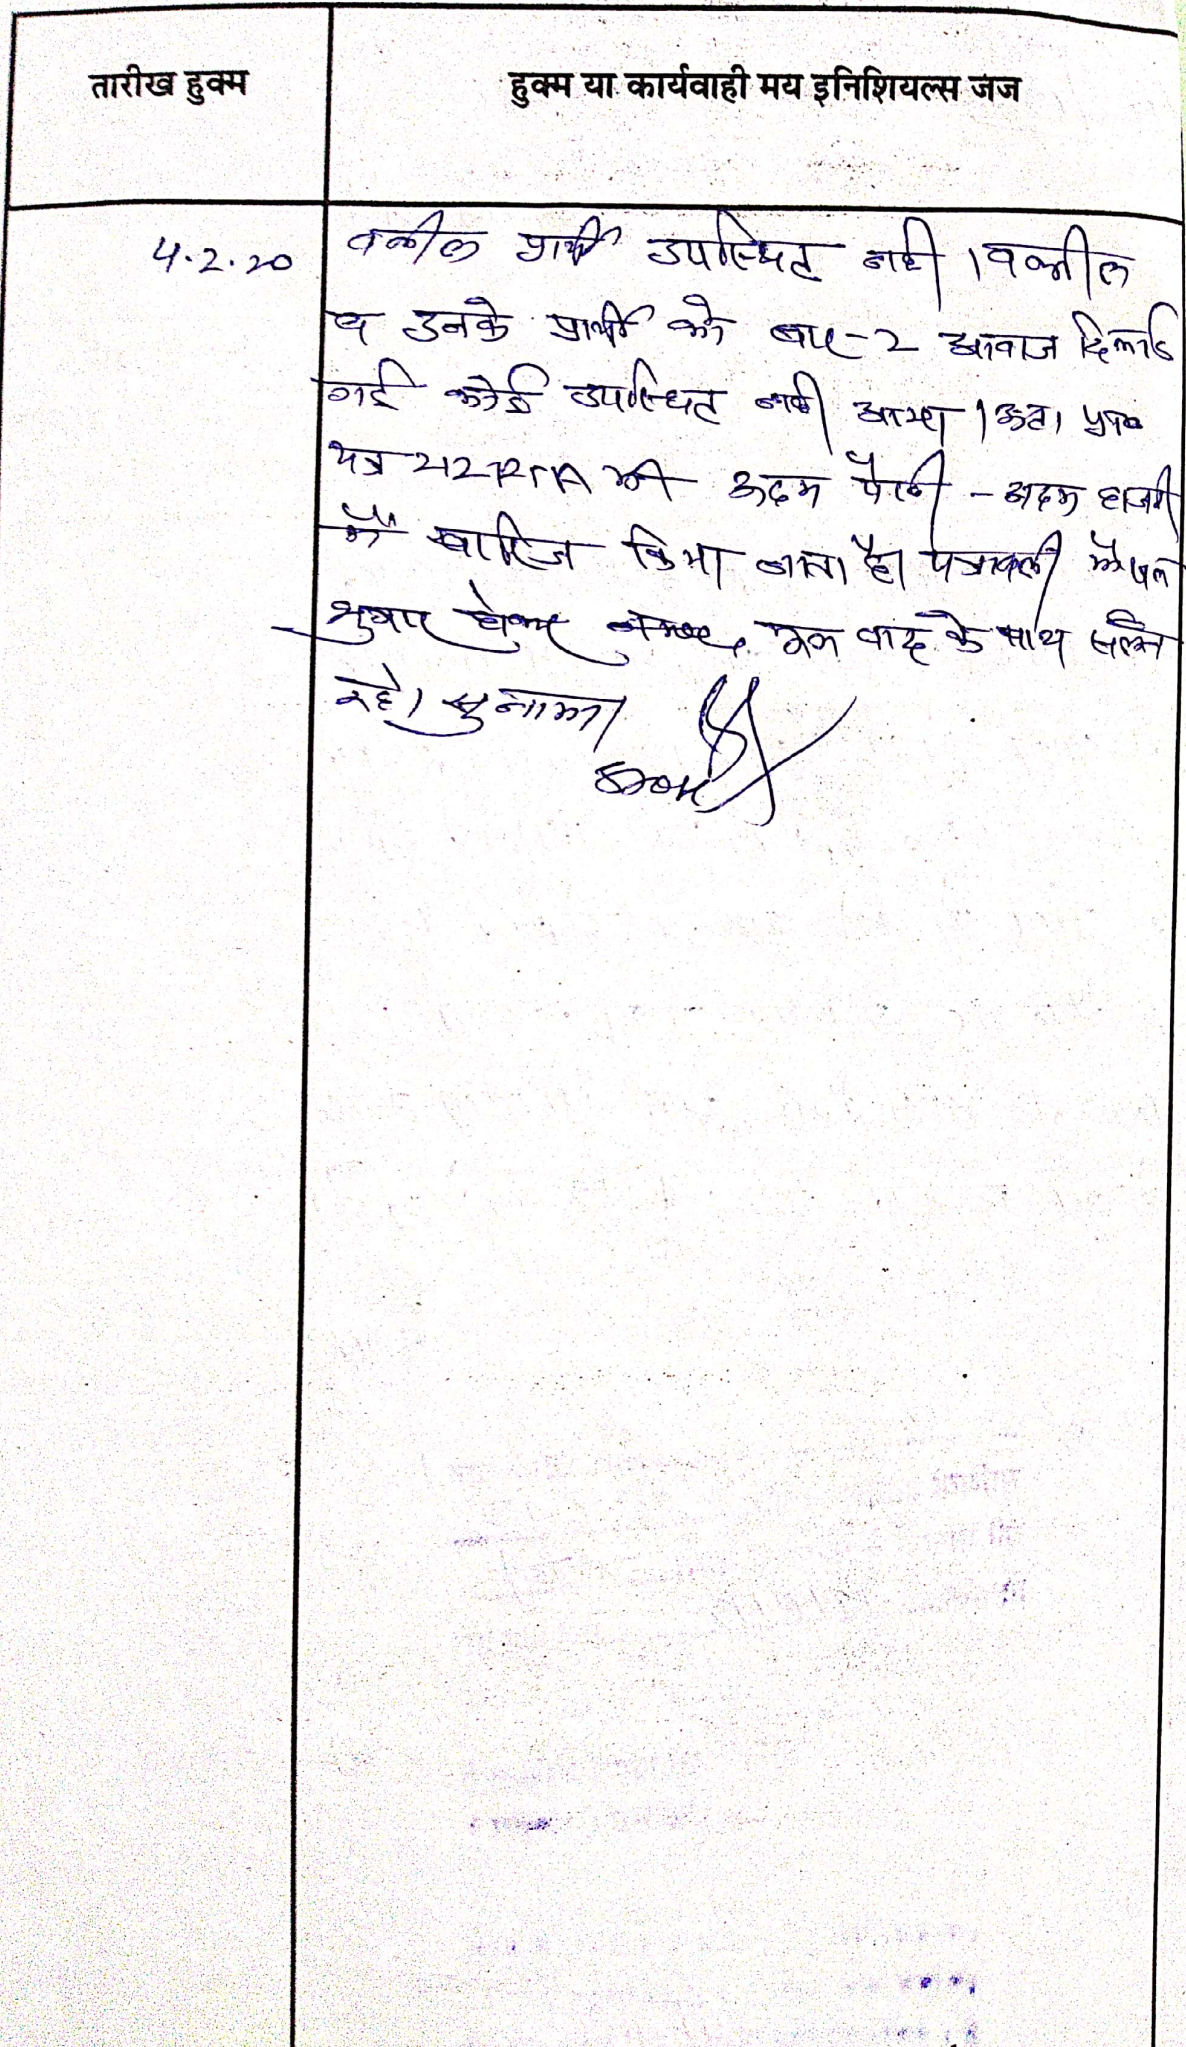 तारीख हुक्म
हुक्म या कार्यवाही मय इनिशियल्स जज
4.2.20
वकील प्रार्थी उपस्थित नही । वकील
व उनके प्रार्थी को बार-2 आवाज दिलाई
गई कोई उपस्थित नही आया । अतः
पत्र 212 RTA को अदम पैरवी - अदम हाजरी
में खारिज किया जाता है। पत्रावली फैसल
शुमार होकर मूल वाद के साथ
रहे। सुनाया